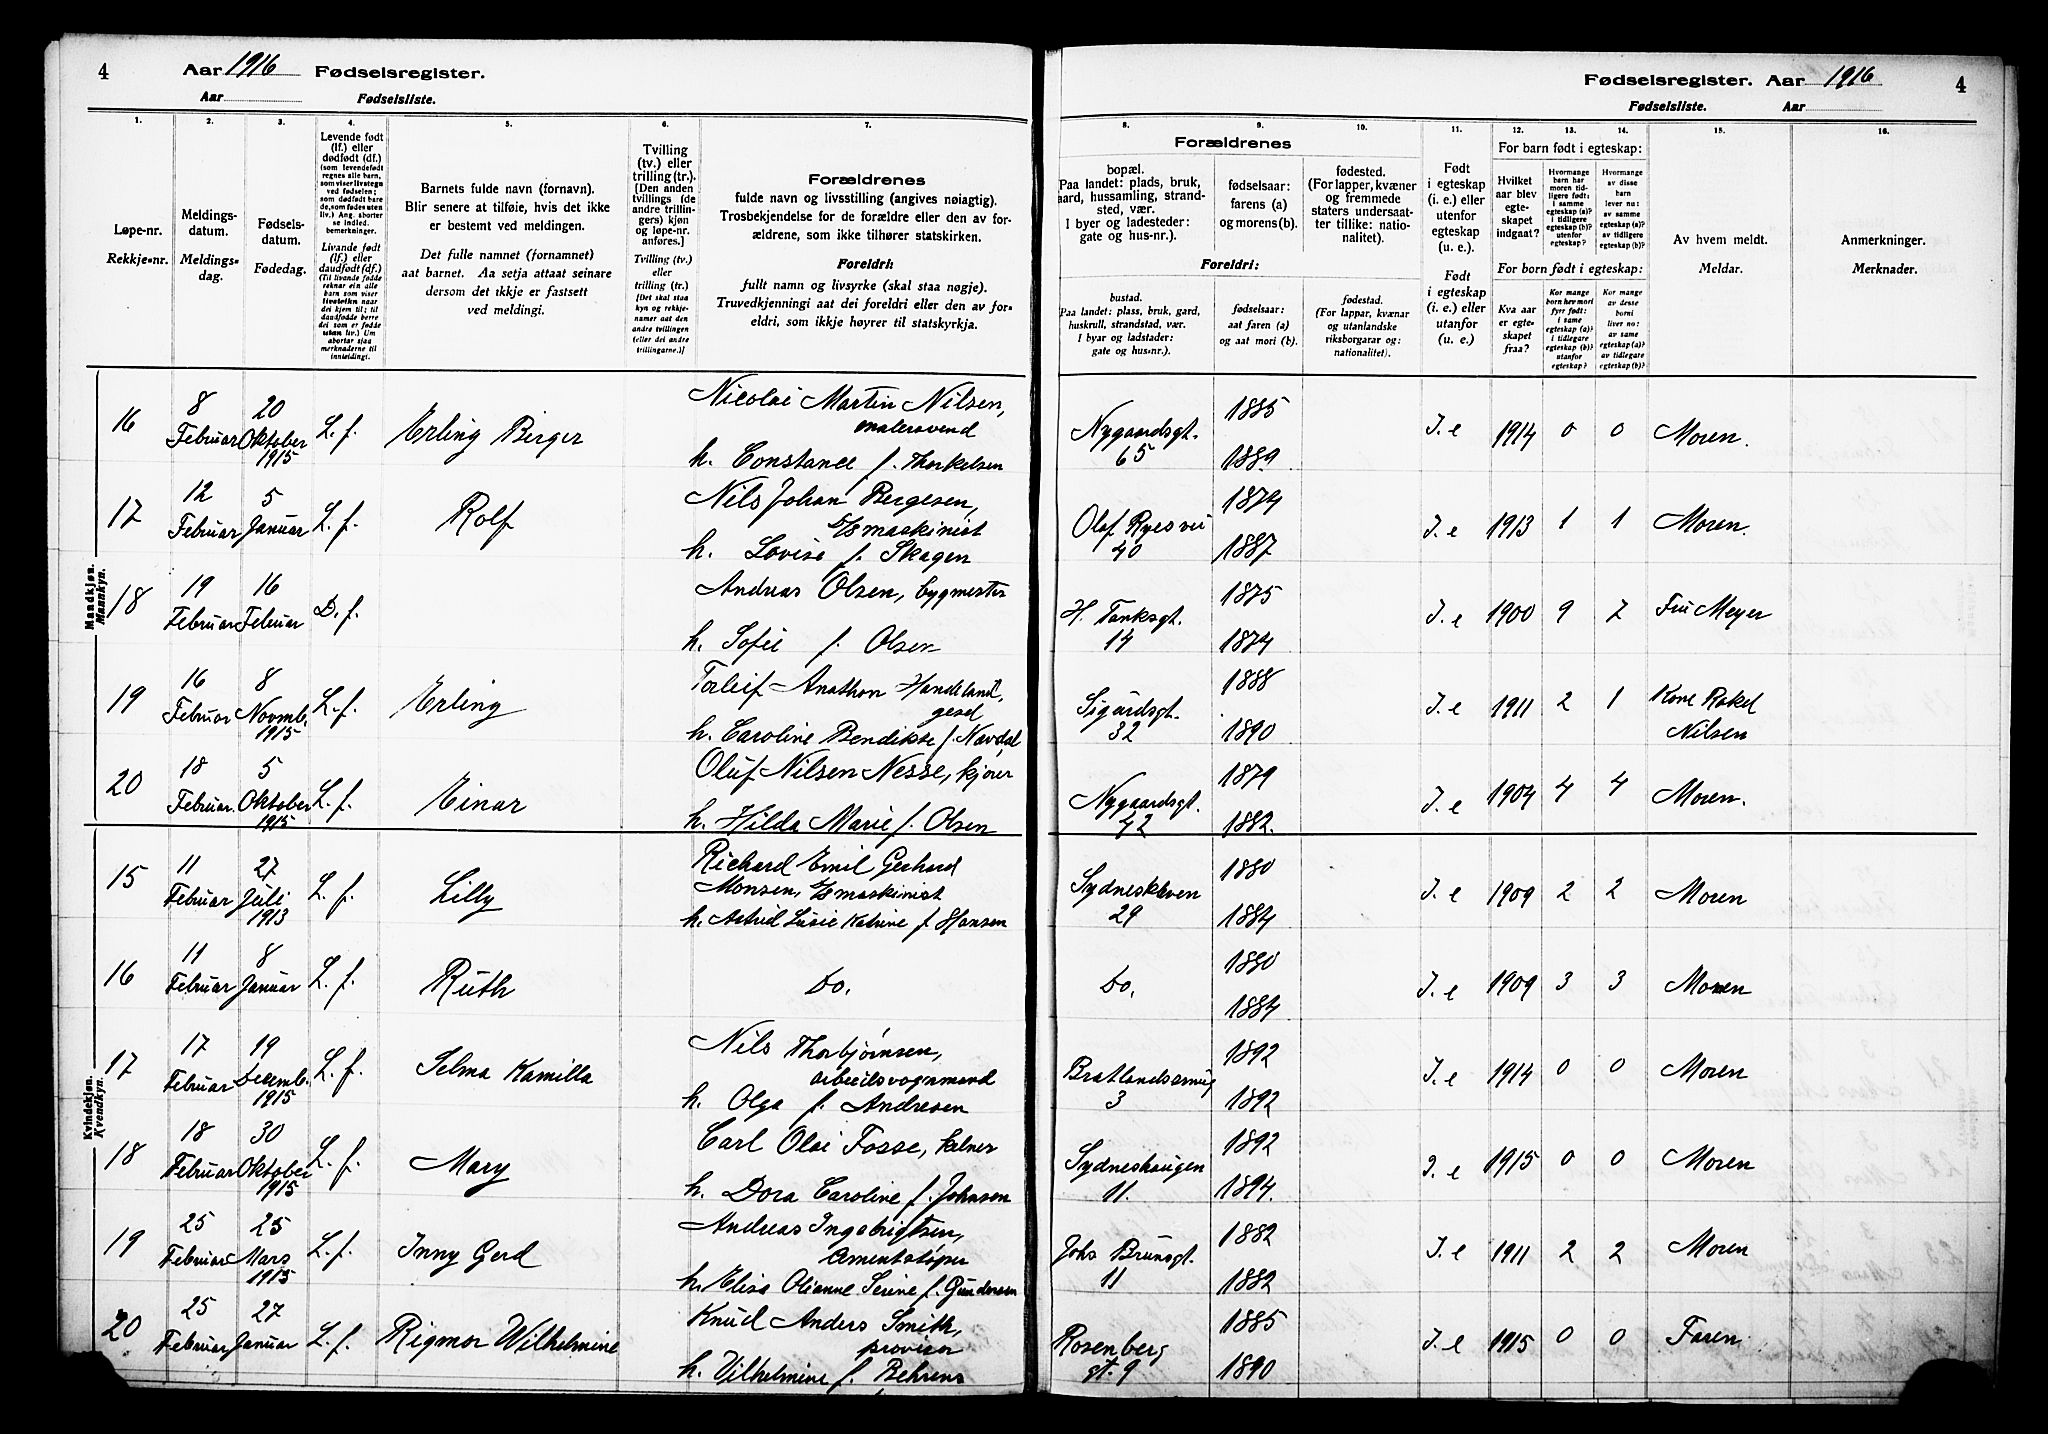 4 Aar 1916 Fødselsregister.
Aar Fødselsliste.
Fødselsregister. Aar 1916 4
Fødselsliste. Aar
1. 2. 3. 4. 5. 6. 7.
8. 9. 10. 11. 12. 13. 14. 15. 16.
Løpe-nr.
Rekkje-nr.
Meldings-
datum.
Meldings-
dag.
Fødsels-
datum.
Fødedag.
Levende født
(lf.) eller
dødfødt (df.)
Livande født
(lf.) eller
daudfødt (df.)
Barnets fulde navn (fornavn).
Blir senere at tilføie, hvis det ikke
er bestemt ved meldingen.
Det fulle namnet (fornamnet)
aat barnet. Aa setja attaat seinare
dersom det ikkje er fastsett
ved meldingi.
Tvilling
(tv.) eller
trilling (tr.).
[Den anden
tvillings (de
andre trillin-
gers) kjøn
og løpe-nr.
anføres.]
Tvilling (tv.)
eller
trilling (tr.)
[Det skal staa
kyn og rekkje-
numer aat den
andre tvillingen
(eller dei andre
trillingarne.)]
Forældrenes
fulde navn og livsstilling (angives nøiagtig).
Trosbekjendelse for de forældre eller den av for-
ældrene, som ikke tilhører statskirken.
Foreldri:
fullt namn og livsyrke (skal staa nøgje).
Truvedkjenningi aat dei foreldri eller den av for-
eldri, som ikkje høyrer til statskyrkja.
Forældrenes
bopæl.
Paa landet: plads, bruk,
aard, hussamling, strand-
sted, vær.
I byer og ladesteder:
gate og hus-nr.).
fødselsaar:
farens (a)
og morens (b).
fødested.
(For lapper, kvæner
og fremmede
staters undersaat-
ter tillike: natio-
nalitet).
Foreldri:
bustad.
Paa landet: plass, bruk, gard,
huskrull, strandstad, vær.
I byar og ladstader:
gate og hus-nr.).
fødselsaar:
aat faren (a)
og aat mori (b).
fødestad.
(For lappar, kvænar
og utanlandske
riksborgarar og:
nationalitet).
Født
i egteskap
(i. e.) eller
utenfor
egteskap
(u. e.).
Født
i egteskap
(i. e.) eller
utanfor
(u. e.)
For barn født i egteskap:
Hvilket
aar blev
egte-
skapet
indgaat?
For born født i egteskap:
Kva aar
er egte-
skapet
fraa?
Av hvem meldt.
Meldar.
Anmerkninger.
Merknader.
Mandkjøn.
Mannkyn.
16 8 Februar 20 Oktober 1915 L. f. Erling Berger Nicolai Martin Nilsen, malersvend h. Constance f. Thorkelsen Nygaardsgt. 65 1885 1889 I. e 1914 0 0 Moren.
17 12 Februar 5 Januar L. f. Rolf Nils Johan Bergesen, maskinist h. Lovise f. Skagen Olaf Ryes vei 40 1874 1887 I. e 1913 1 1 Moren.
18 19 Februar 16 Februar D. f. Andreas Olsen, bygmester h. Sofie f. Olsen H. Tanksgt. 14 1875 1874 I. e 1900 9 7 Fru Meyer
19 16 Februar 8 Novmb. 1915 L. f. Erling Torleif Anathon Handeland, h. Caroline Bendikte f. Navdal Sigurdsgt. 32 1888 1890 I. e 1911 2 1 Kone Rakel Nilsen
20 18 Februar. 5 Oktober 1915 L. f. Einar Oluf Nilsen Nesse, kjører h. Hilda Marie f. Olsen Nygaardsgt. 42 1879 1882. I. e 1904 4 4 Moren.
Kvindekjøn.
Kvendkyn.
15 11 Februar 27 Juli 1913 L. f. Lilly Richard Emil Gerhard Monsen, maskinist h. Astrid Lusie Katrine f. Hansen Sydneskleven 29 1880 1884 I. e 1909 2 2 Moren
16 11 Februar 8 Januar L. f. Ruth Do. Do. 1880 1884 I. e 1909 3 3 Moren
17 17 Februar 19 Decemb. 1915 L. f. Selma Kamilla Nils Thorbjørnsen, arbeidsvognmand h. Olga f. Andresen Bratlandssmug 3 1892 1892 I. e 1914 0 0 Moren
18 18 Februar 30 Oktober 1915 L. f. Mary Carl Olai Fosse, kelner h. Dora Caroline f. Johnson Sydneshaugen 11. 1892 1894. I. e 1915 0 0 Moren
19 25 Februar 25 Mars 1915 L. f. Inny Gerd Andreas Ingebrigtsen, cementstøper h. Elisa Olianne Serine f. Gundersen Johs Brunsgt. 11 1882 1882 I. e 1911 2 2 Moren
20 25 Februar 27 Januar L. f. Rigmor Wilhelmine Knud Anders Smith, provisor h. Vilhelmine f. Behrens Rosenberg gt. 9 1885 1890 I. e 1915 0 0 Faren